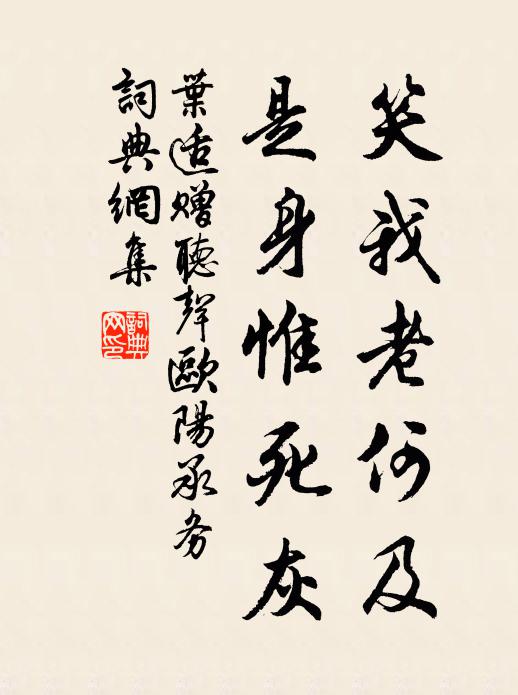 笑我老何及
是身惟死灰
葉适贈聽聲歐陽承务
詞典網集
詞典網印